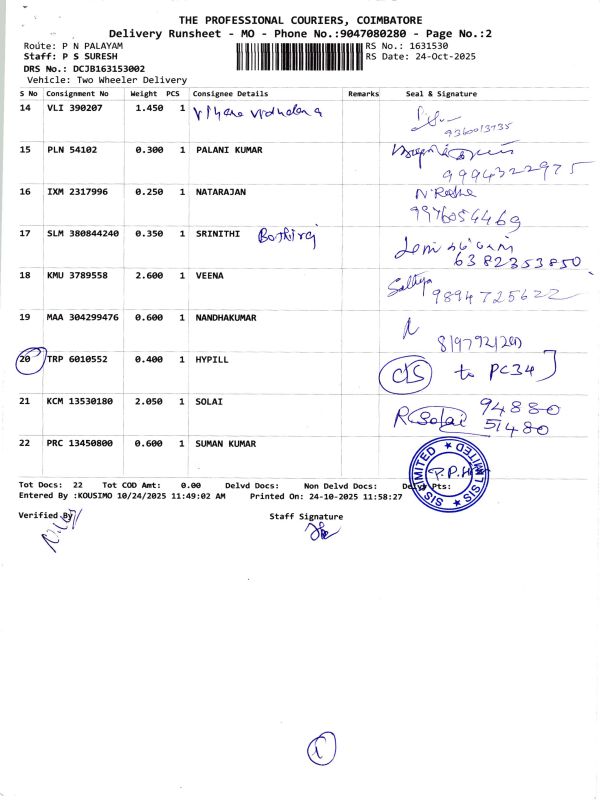 THE PROFESSIONAL COURIERS, COIMBATORE
Delivery Runsheet - MO - Phone No.:9047080280 - Page No.:2
Route: P N PALAYAM RS No.: 1631530
Staff: P S SURESH RS Date: 24-Oct-2025
DRS No.: DCJB163153002
Vehicle: Two Wheeler Delivery
S No Consignment No Weight PCS Consignee Details Remarks Seal & Signature
14 VLI 390207 1.450 1
9360013735
15 PLN 54102 0.300 1 PALANI KUMAR
9994322975
16 IXM 2317996 0.250 1 NATARAJAN
9976054469
17 SLM 380844240 0.350 1 SRINITHI
6382353850
18 KMU 3789558 2.600 1 VEENA Sathya
9894725622
19 MAA 304299476 0.600 1 NANDHAKUMAR
20 TRP 6010552 0.400 1 HYPILL C/S to PC34
21 KCM 13530180 2.050 1 SOLAI R Solai 94880
51480
22 PRC 13450800 0.600 1 SUMAN KUMAR
SIS LIMITED
Tot Docs: 22 Tot COD Amt: 0.00 Delvd Docs: Non Delvd Docs: Delvd Pts:
Entered By :KOUSIMO 10/24/2025 11:49:02 AM Printed On: 24-10-2025 11:58:27
Verified By Staff Signature